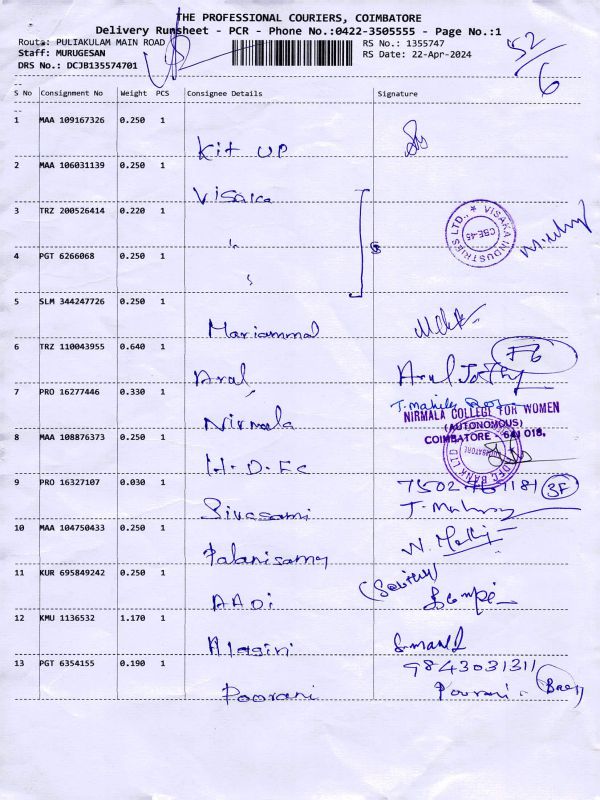 THE PROFESSIONAL COURIERS, COIMBATORE
Delivery Runsheet - PCR - Phone No.:0422-3505555 - Page No.:1
Route: PULIAKULAM MAIN ROAD RS No.: 1355747
Staff: MURUGESAN RS Date: 22-Apr-2024
DRS No.: DCJB135574701
52/6
S No Consignment No Weight PCS Consignee Details Signature
--
1 MAA 109167326 0.250 1
Kit UP
2 MAA 106031139 0.250 1
Visaka
3 TRZ 200526414 0.220 1
VISAKA INDUSTRIES LTD., CBE-45
4 PGT 6266068 0.250 1
5 SLM 344247726 0.250 1
Mariammal
6 TRZ 110043955 0.640 1
F6
Arul Arul Jothy
7 PRO 16277446 0.330 1
Nirmala
NIRMALA COLLEGE FOR WOMEN
(AUTONOMOUS)
COIMBATORE - 641 018.
8 MAA 108876373 0.250 1
H.D.Fc
BANK LTD
9 PRO 16327107 0.030 1
3F
Sivasami
10 MAA 104750433 0.250 1
Palanisamy
11 KUR 695849242 0.250 1
AADi
12 KMU 1136532 1.170 1
Alagiri
13 PGT 6354155 0.190 1
9843031311
Poorani Poorani